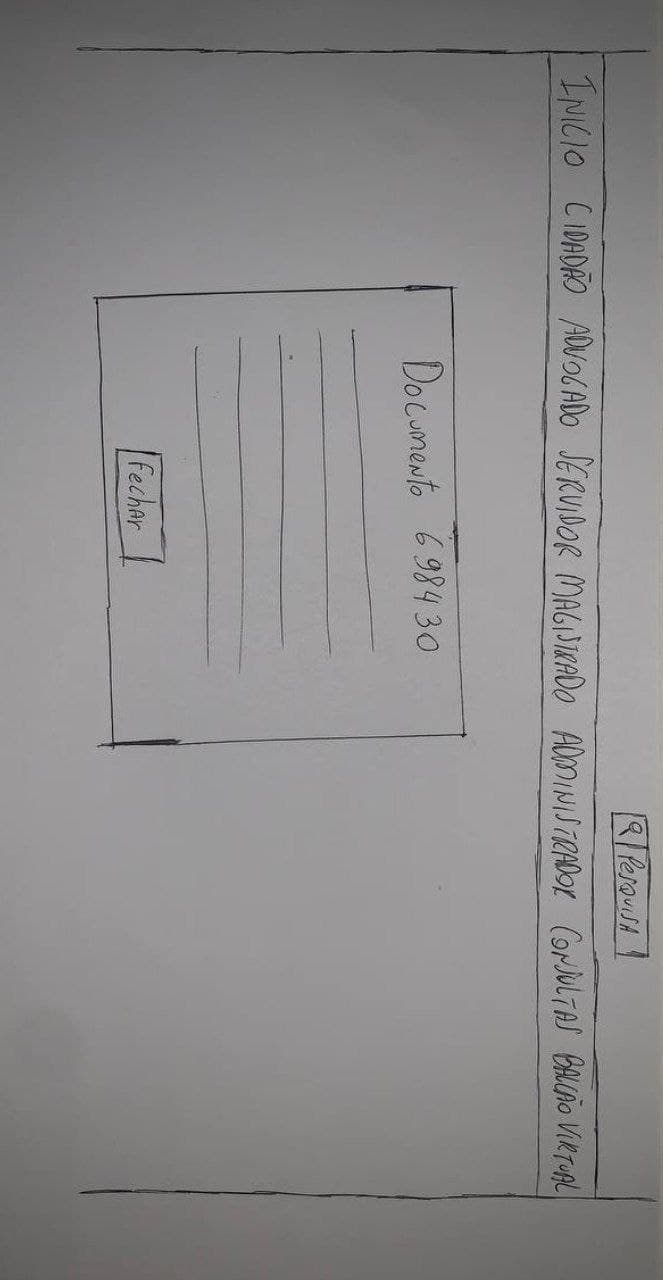 Pesquisa
INICIO CIDADÃO ADVOGADO SERVIDOR MAGISTRADO ADMINISTRADOR CONSULTAS BALCÃO VIRTUAL
Documento 698430
Fechar